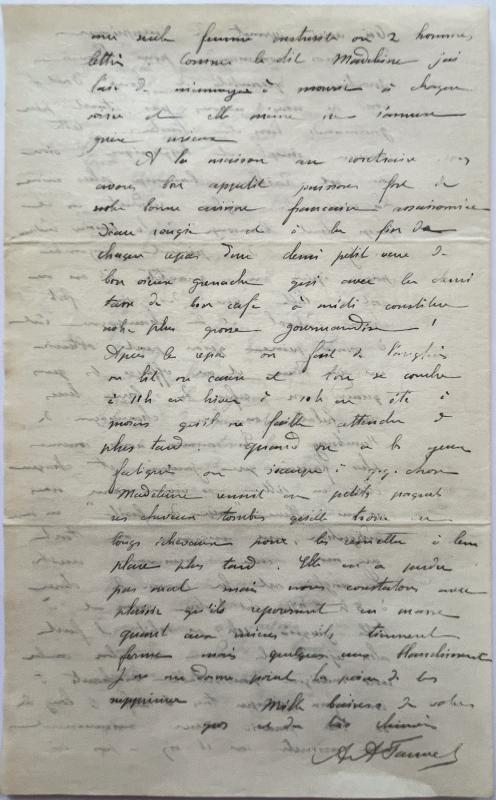 seule femme instruite ou 2 hommes
lettrés Comme le dit Madeleine j'ai
l'air de m'ennuyer à mourir à chaque
et elle même ne s'amuse
guère mieux
A la maison au contraire nous
avons bon appetit
notre bonne cuisine française assaisonnée
d'eau rougie et à la fin de
chaque repas d'un demi petit verre de
bon vieux grenache qui avec la demi
tasse de bon café à midi constitue
notre plus grosse gourmandise !
Après le repas on fait de l'anglais
on lit on cause et l'on se couche
à 11h en hiver à 10h en été à
moins qu'il ne faille attendre
plus tard. quand on a les yeux
fatigués on s'occupe à qq. chose
Madeleine réunit en petits paquets
ses cheveux tombés qu'elle
longs écheveaux pour les remettre à leur
place plus tard. Elle en a perdu
pas mal mais nous constatons avec
plaisir qu'ils repoussent en masse
quant aux miens ils tiennent
ferme mais quelques uns blanchissent
je ne me donne point la peine de les
supprimer Mille baisers de votre
et du